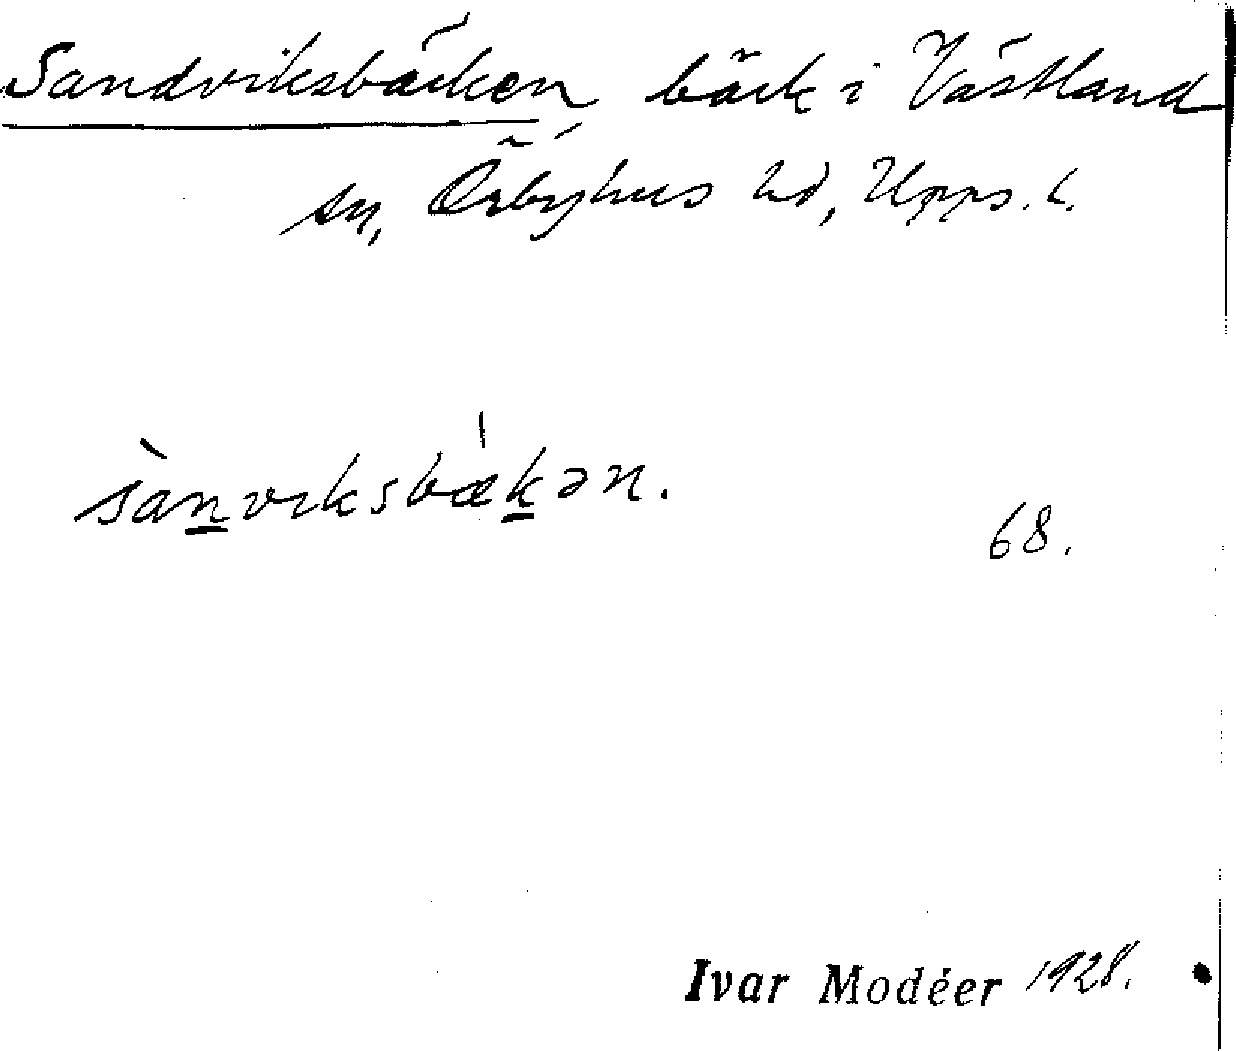 Sandviksbäcken, bäck i Västland
sn, Örbyhus hd, Upps. l.
sànviksbæ̍kən.
68.
Ivar Modéer 1928.